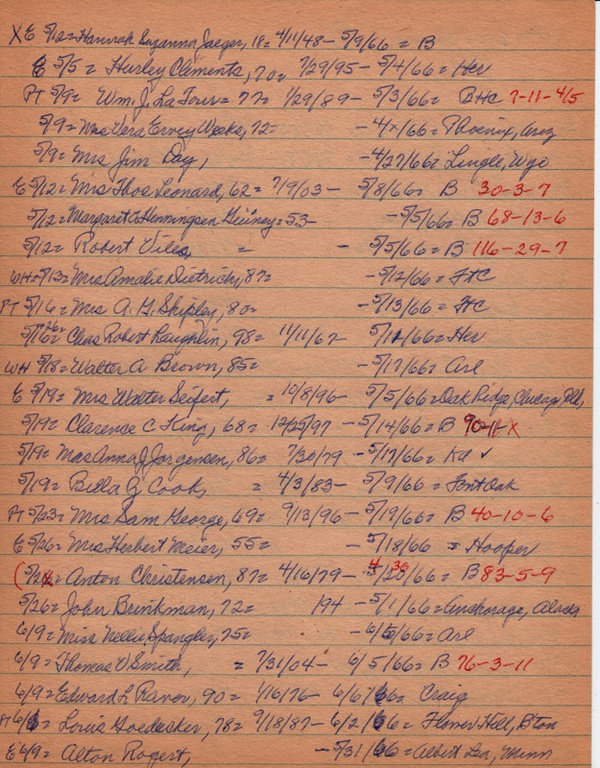 XE 5/12= Hannah Suzanna Jaeger, 18= 4/11/48- 5/9/66 = B
E 5/5= Hurley Clements, 70= 7/29/95- 5/4/66= Her
PT 5/9= Wm. J. LaTour= 77= 1/29/89- 5/3/66= BHC 7-11-4/5
5/9= Mrs Vera Ervey Weeks, 72= -4/x/66= Phoenix, Ariz
5/9= Mrs Jim Day, -4/27/66= Lingle, Wyo
E 5/12= Mrs Thos Leonard, 62= 7/9/03- 5/8/66= B 30-3-7
5/12= Margaret C Henningsen Guiney= 53- -5/5/66= B 68-13-6
5/12= Robert Viles, = - 5/5/66= B 116-29-7
WH= 5/13= Mrs Amalie Dietrich, 87= -5/12/66= FtC
PT 5/16= Mrs A. G. Shipley, 80= -5/13/66= FtC
5/16= Chas Robert Laughlin, 98= 11/11/67 5/12/66= Her
WH 5/18= Walter A Brown, 85= -5/17/66= Arl
E 5/19= Mrs Walter Seifert, = 10/8/96- 5/5/66= Oak Ridge, Chicago Ill,
5/19= Clarence C King, 68= 12/25/97 -5/14/66= B 90-11-X
5/19= Mrs Anna J Jorgensen, 86= 7/30/79 -5/17/66= Ka ✓
5/19= Billa G Cook, = 4/3/83- 5/9/66= Font Oak
PT 5/23= Mrs Sam George, 69= 9/13/96- 5/19/66= B 40-10-6
E 5/26= Mrs Herbert Meier, 55= -5/18/66 = Hooper
(5/26= Anton Christensen, 87= 4/16/79- 4/30/66= B 83-5-9
5/26= John Brinkman, 72= 194 -5/1/66= Anchorage, Alaska
6/9= Miss Nellie Spangler, 75= -6/5/66= Arl
6/9= Thomas V Smith, = 7/31/04- 6/5/66= B 76-3-11
6/9= Edward L Raver, 90= 1/16/76- 6/6/66= Craig
PT 6/6= Louis Goedeker, 78= 9/18/87- 6/2/66= Flower Hill, Bton
E 6/9= Alton Rogert, -5/31/66= Albert Lea, Minn